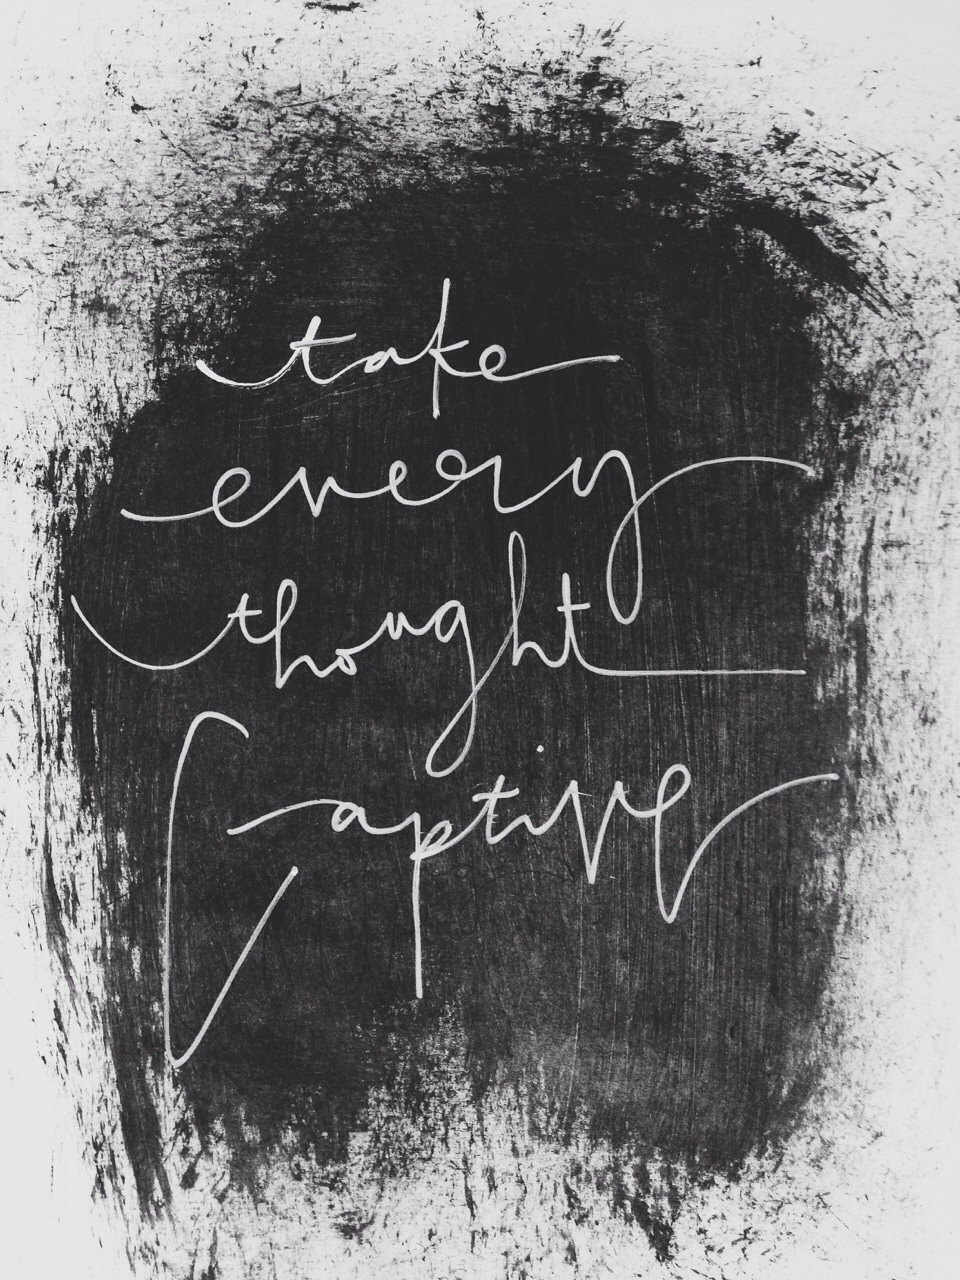 take
every
thought
Captive